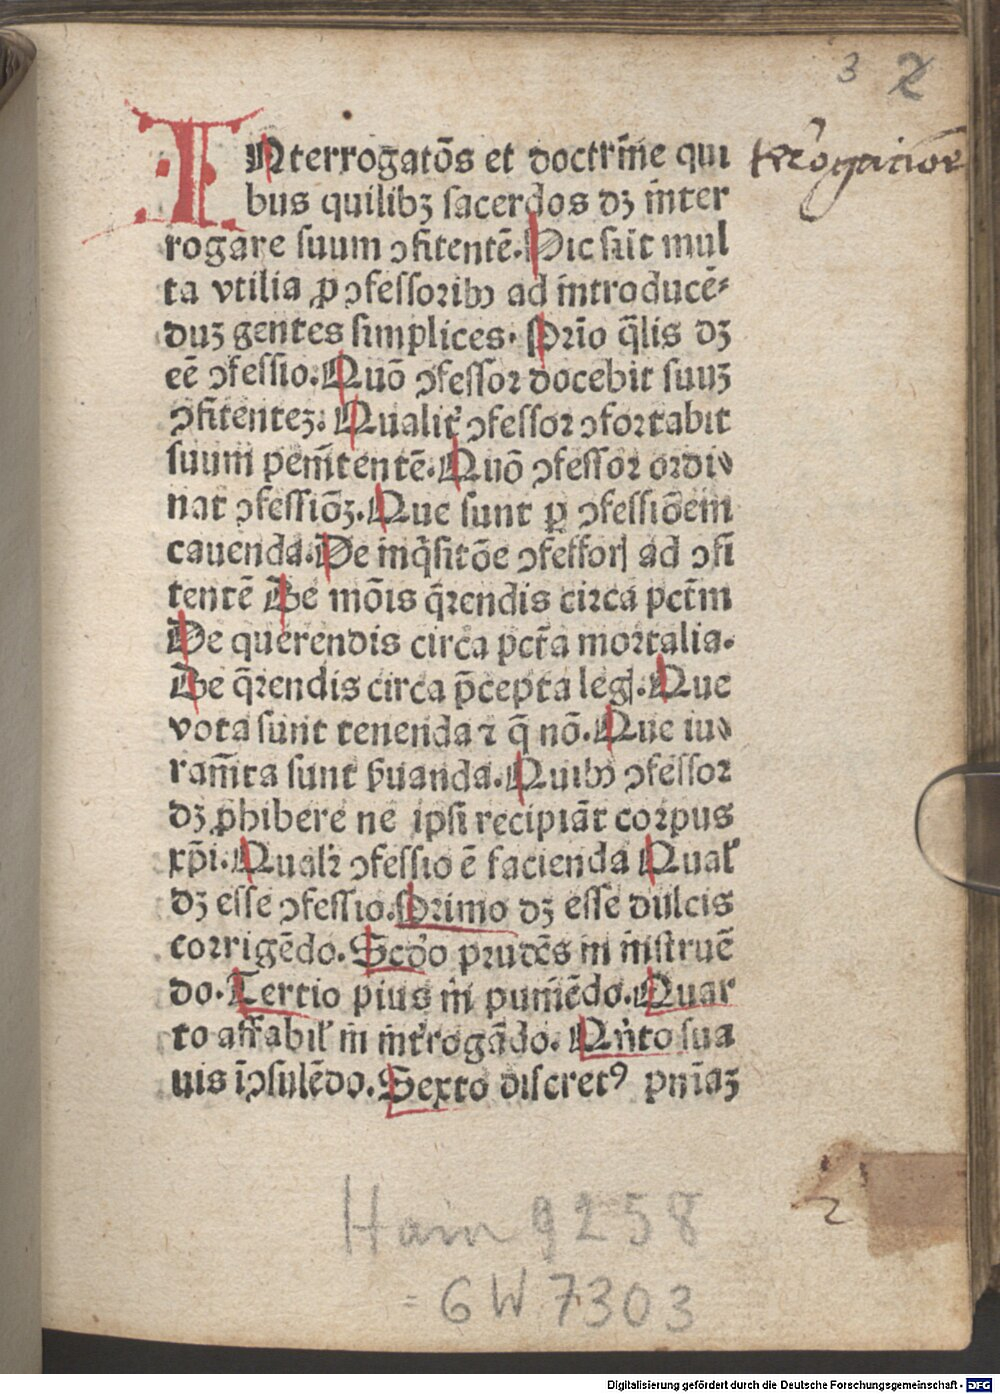 3 2
INterrogatōs et doctrīne qui
bus quilibꝫ sacerdos dꝫ īnter
rogare suum ɔfitentē. Hic sūt mul
ta vtilia ꝓ ɔfessoribꝰ ad introducē⸗
duꝫ gentes simplices. Prīo q̄lis dꝫ
eē ɔfessio. Quō ɔfessor docebit suuꝫ
ɔfitenteꝫ. Qualit̓ ɔfessor ɔfortabit
suum penītentē. Quō ɔfessor ordi⸗
nat ɔfessiōꝫ. Que sunt ꝑ ɔfessiōem
cauenda. De inq̄sitōe ɔfessorꝭ ad ɔfi
tentē De mōis q̄rendis circa pctm̄
De querendis circa pctā mortalia.
De q̄rendis circa p̄cepta legꝭ. Que
vota sunt tenenda ⁊ q̄ nō. Que iu⸗
ram̄ta sunt ẜuanda. Quibꝰ ɔfessor
dꝫ ꝓhibere ne ipsi recipiāt corpus
xp̄i. Qualr̓ ɔfessio ē facienda Qual̓
dꝫ esse ɔfessio. Primo dꝫ esse dulcis
corrigēdo. Scd̓o prudēs in īnstruē
do. Tertio pius in puniēdo. Quar
to affabil̓ in int̓rogādo. Qn̄to sua
uis ī ɔsulēdo. Sexto discretꝰ pn̄iaꝫ
2
Hain 9258
= GW 7303
Digitalisierung gefördert durch die Deutsche Forschungsgemeinschaft - DFG